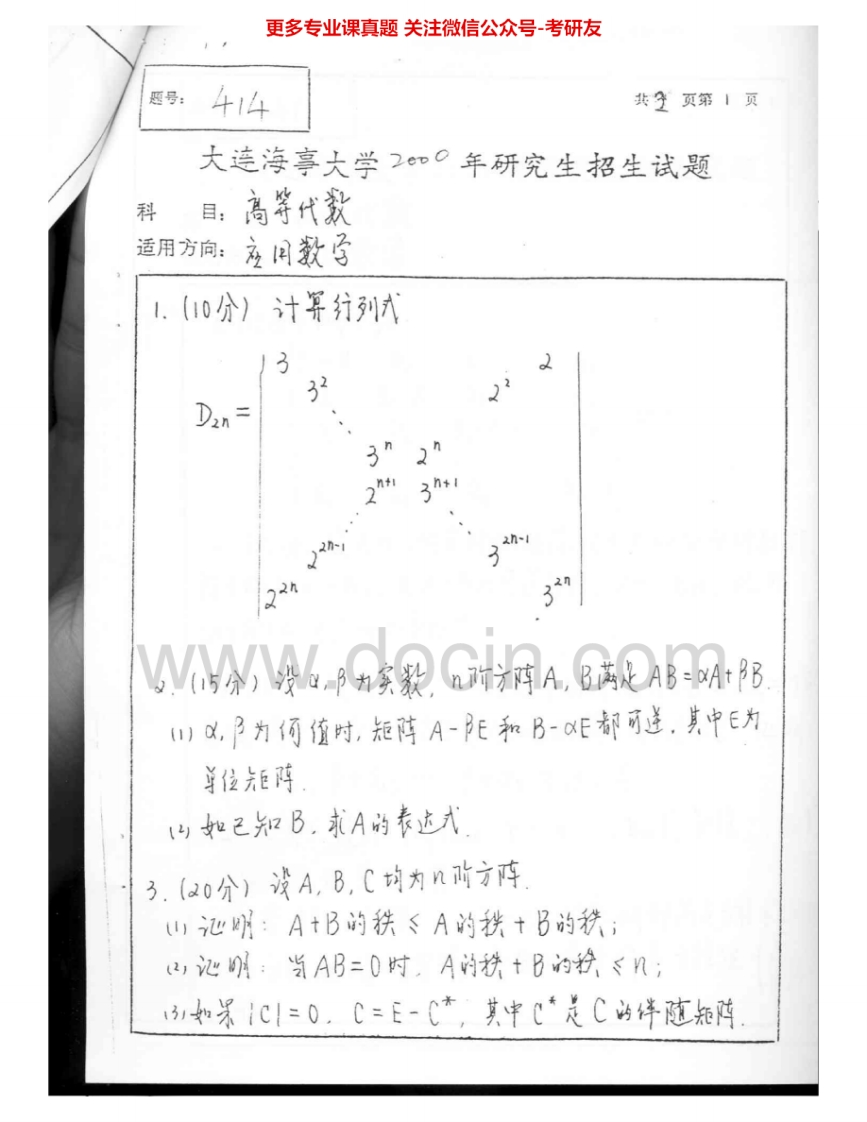 更多专业课真题 关注微信公众号-考研友
题号: 414
共 2 页第 1 页
大连海事大学2000年研究生招生试题
科 目: 高等代数
适用方向: 应用数学
1. (10分) 计算行列式
3 2
3² 2²
⋱
D₂ₙ =
3ⁿ 2ⁿ
2ⁿ⁺¹ 3ⁿ⁺¹
⋰ ⋱
2²ⁿ⁻¹ 3²ⁿ⁻¹
2²ⁿ 3²ⁿ
www.docin.com
2. (15分) 设α, β为实数, n阶方阵A, B满足 AB=αA+βB.
(1) α, β为何值时, 矩阵 A-βE 和 B-αE都可逆, 其中E为
单位矩阵.
(2) 如已知B, 求A的表达式.
3. (20分) 设A, B, C均为n阶方阵.
(1) 证明: A+B的秩 ≤ A的秩+B的秩;
(2) 证明: 当AB=0时, A的秩+B的秩 ≤n;
(3) 如果|C|=0, C=E-C*, 其中C*是C的伴随矩阵.